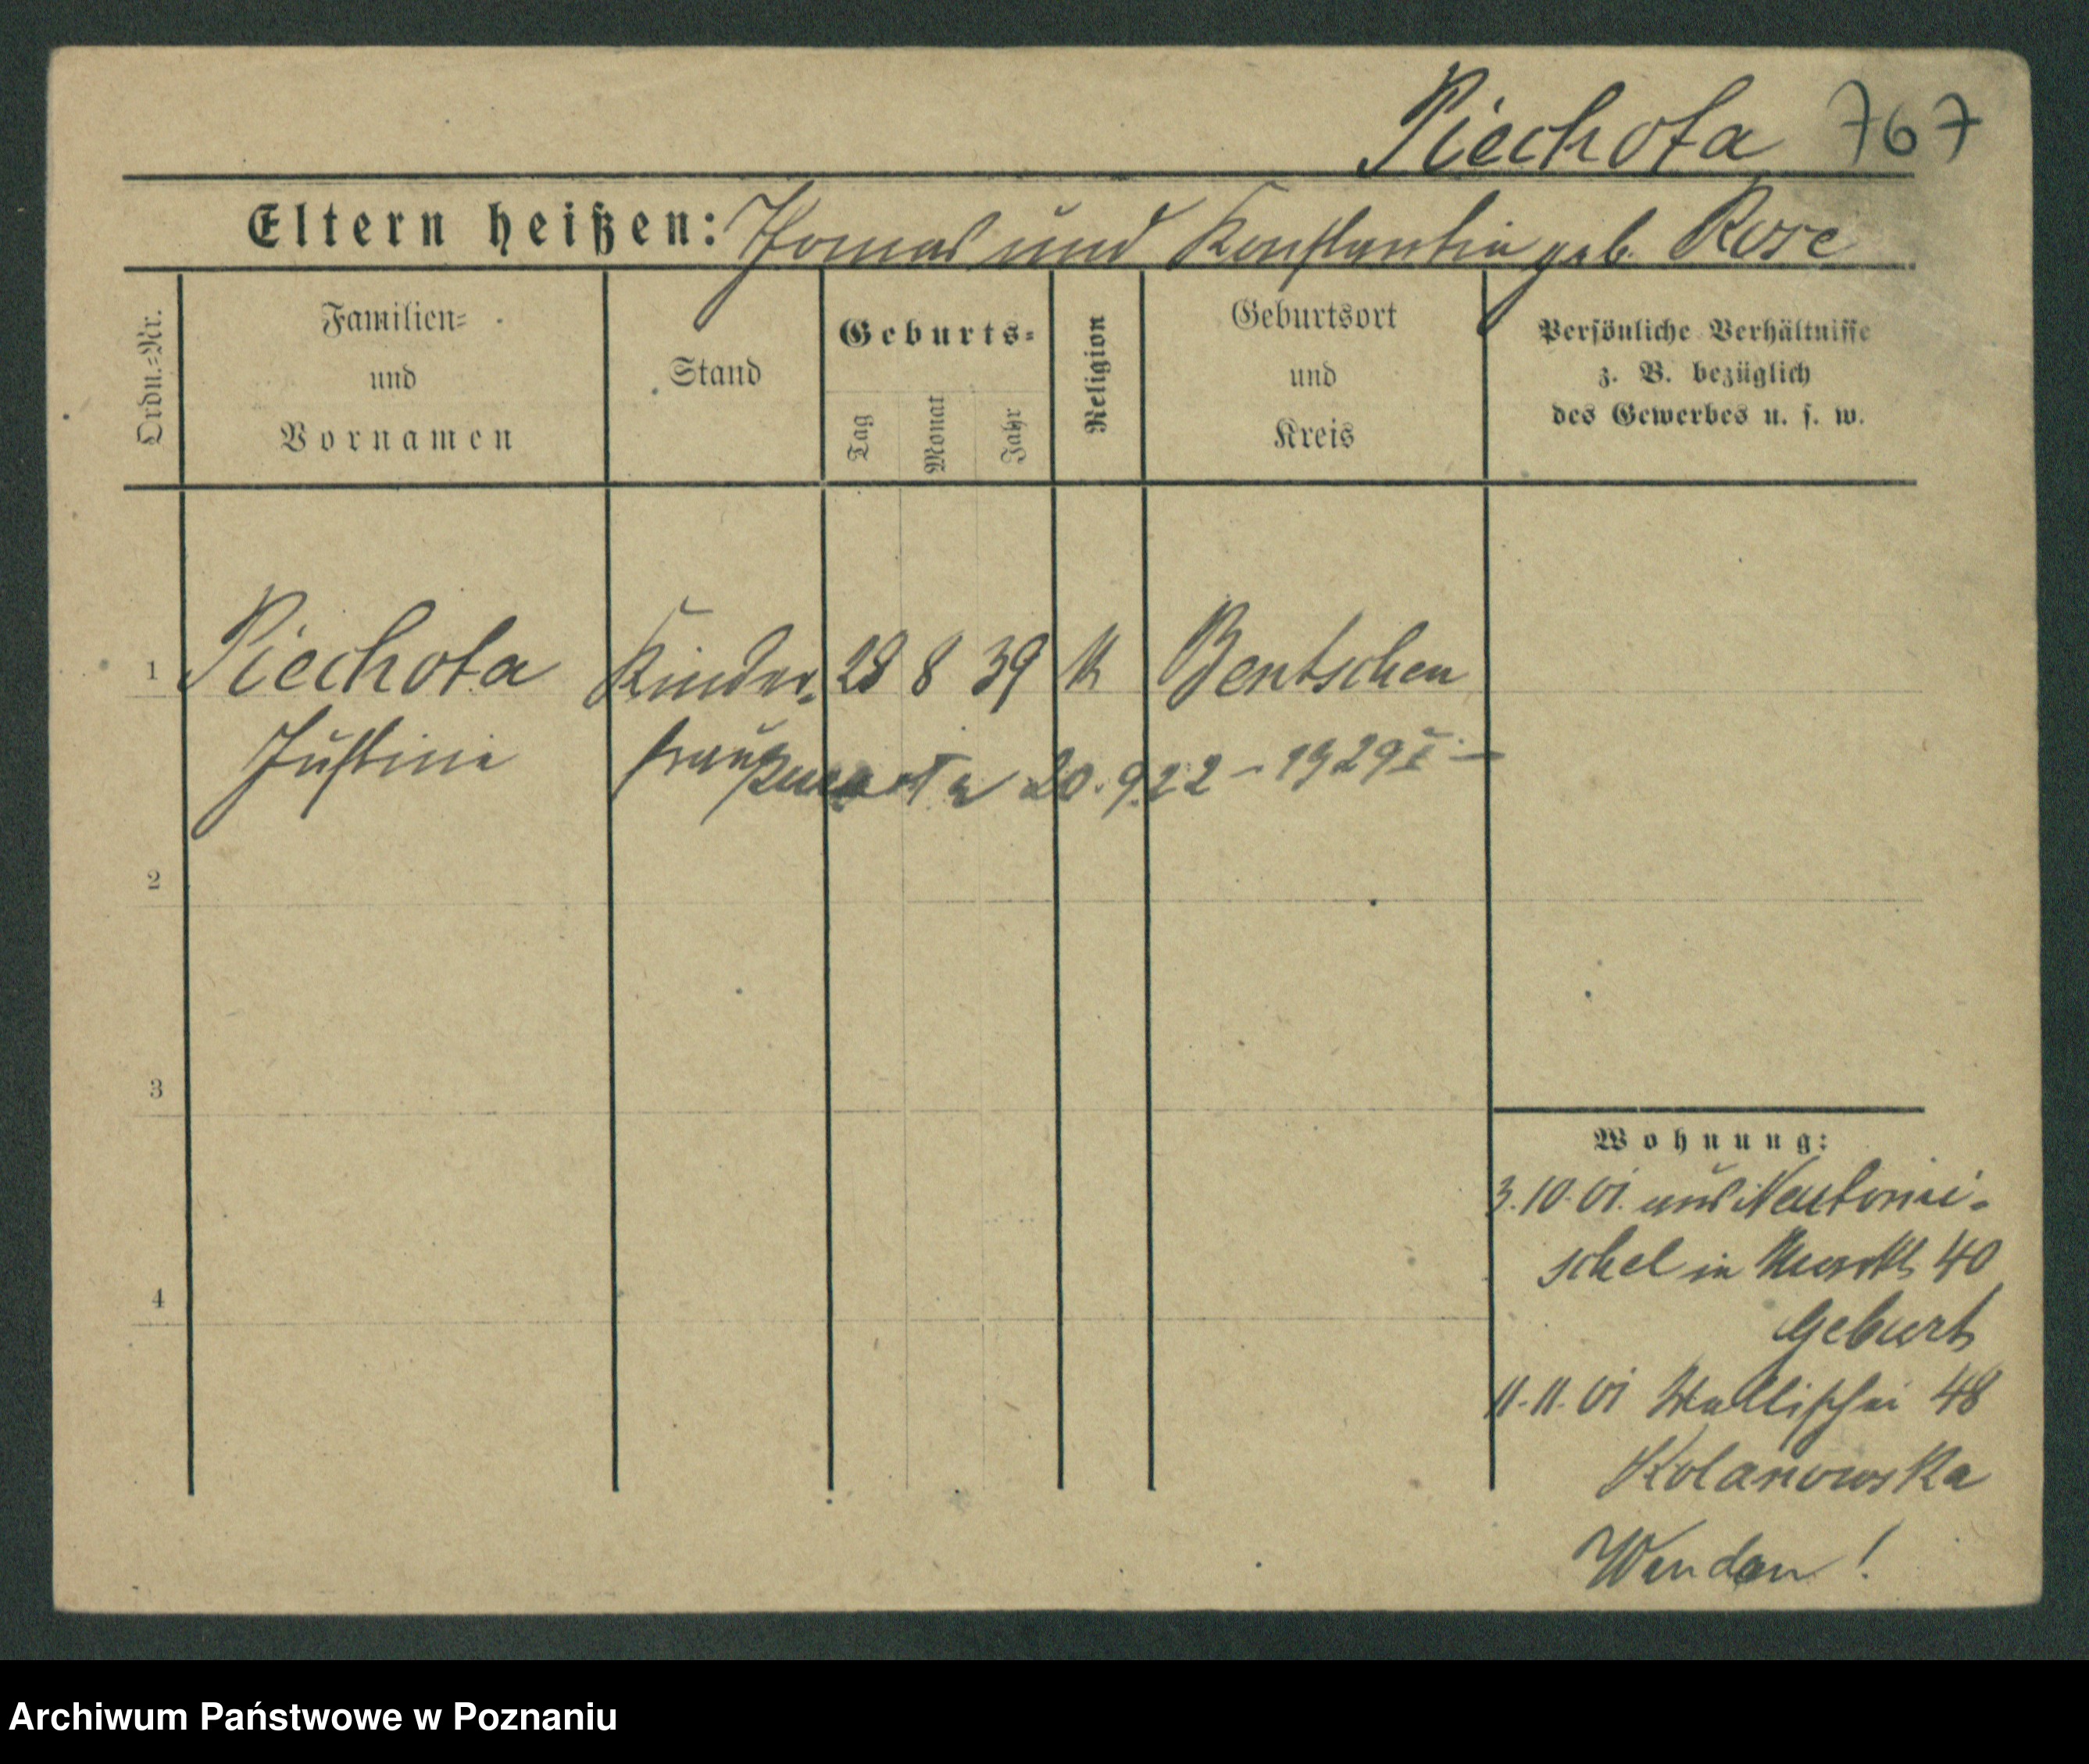 Piechota 767
Eltern heißen: Thomas und Konstantia geb. Rose
Ordn.=Nr.
Familien=
und
Vornamen
Stand
Geburts=
Tag
Monat
Jahr
Religion
Geburtsort
und
Kreis
Persönliche Verhältnisse
z. B. bezüglich
des Gewerbes u. s. w.
1 Piechota Kinder= 28 8 39 k Bentschen
Justine frau
20.9.22 - 1929 I -
2
3
4
Wohnung:
3.10.01. aus Neutomi=
schel in Markt 40
Geburt
11.11.01 Wallischei 48
Kolanowska
Wenden!
Archiwum Państwowe w Poznaniu